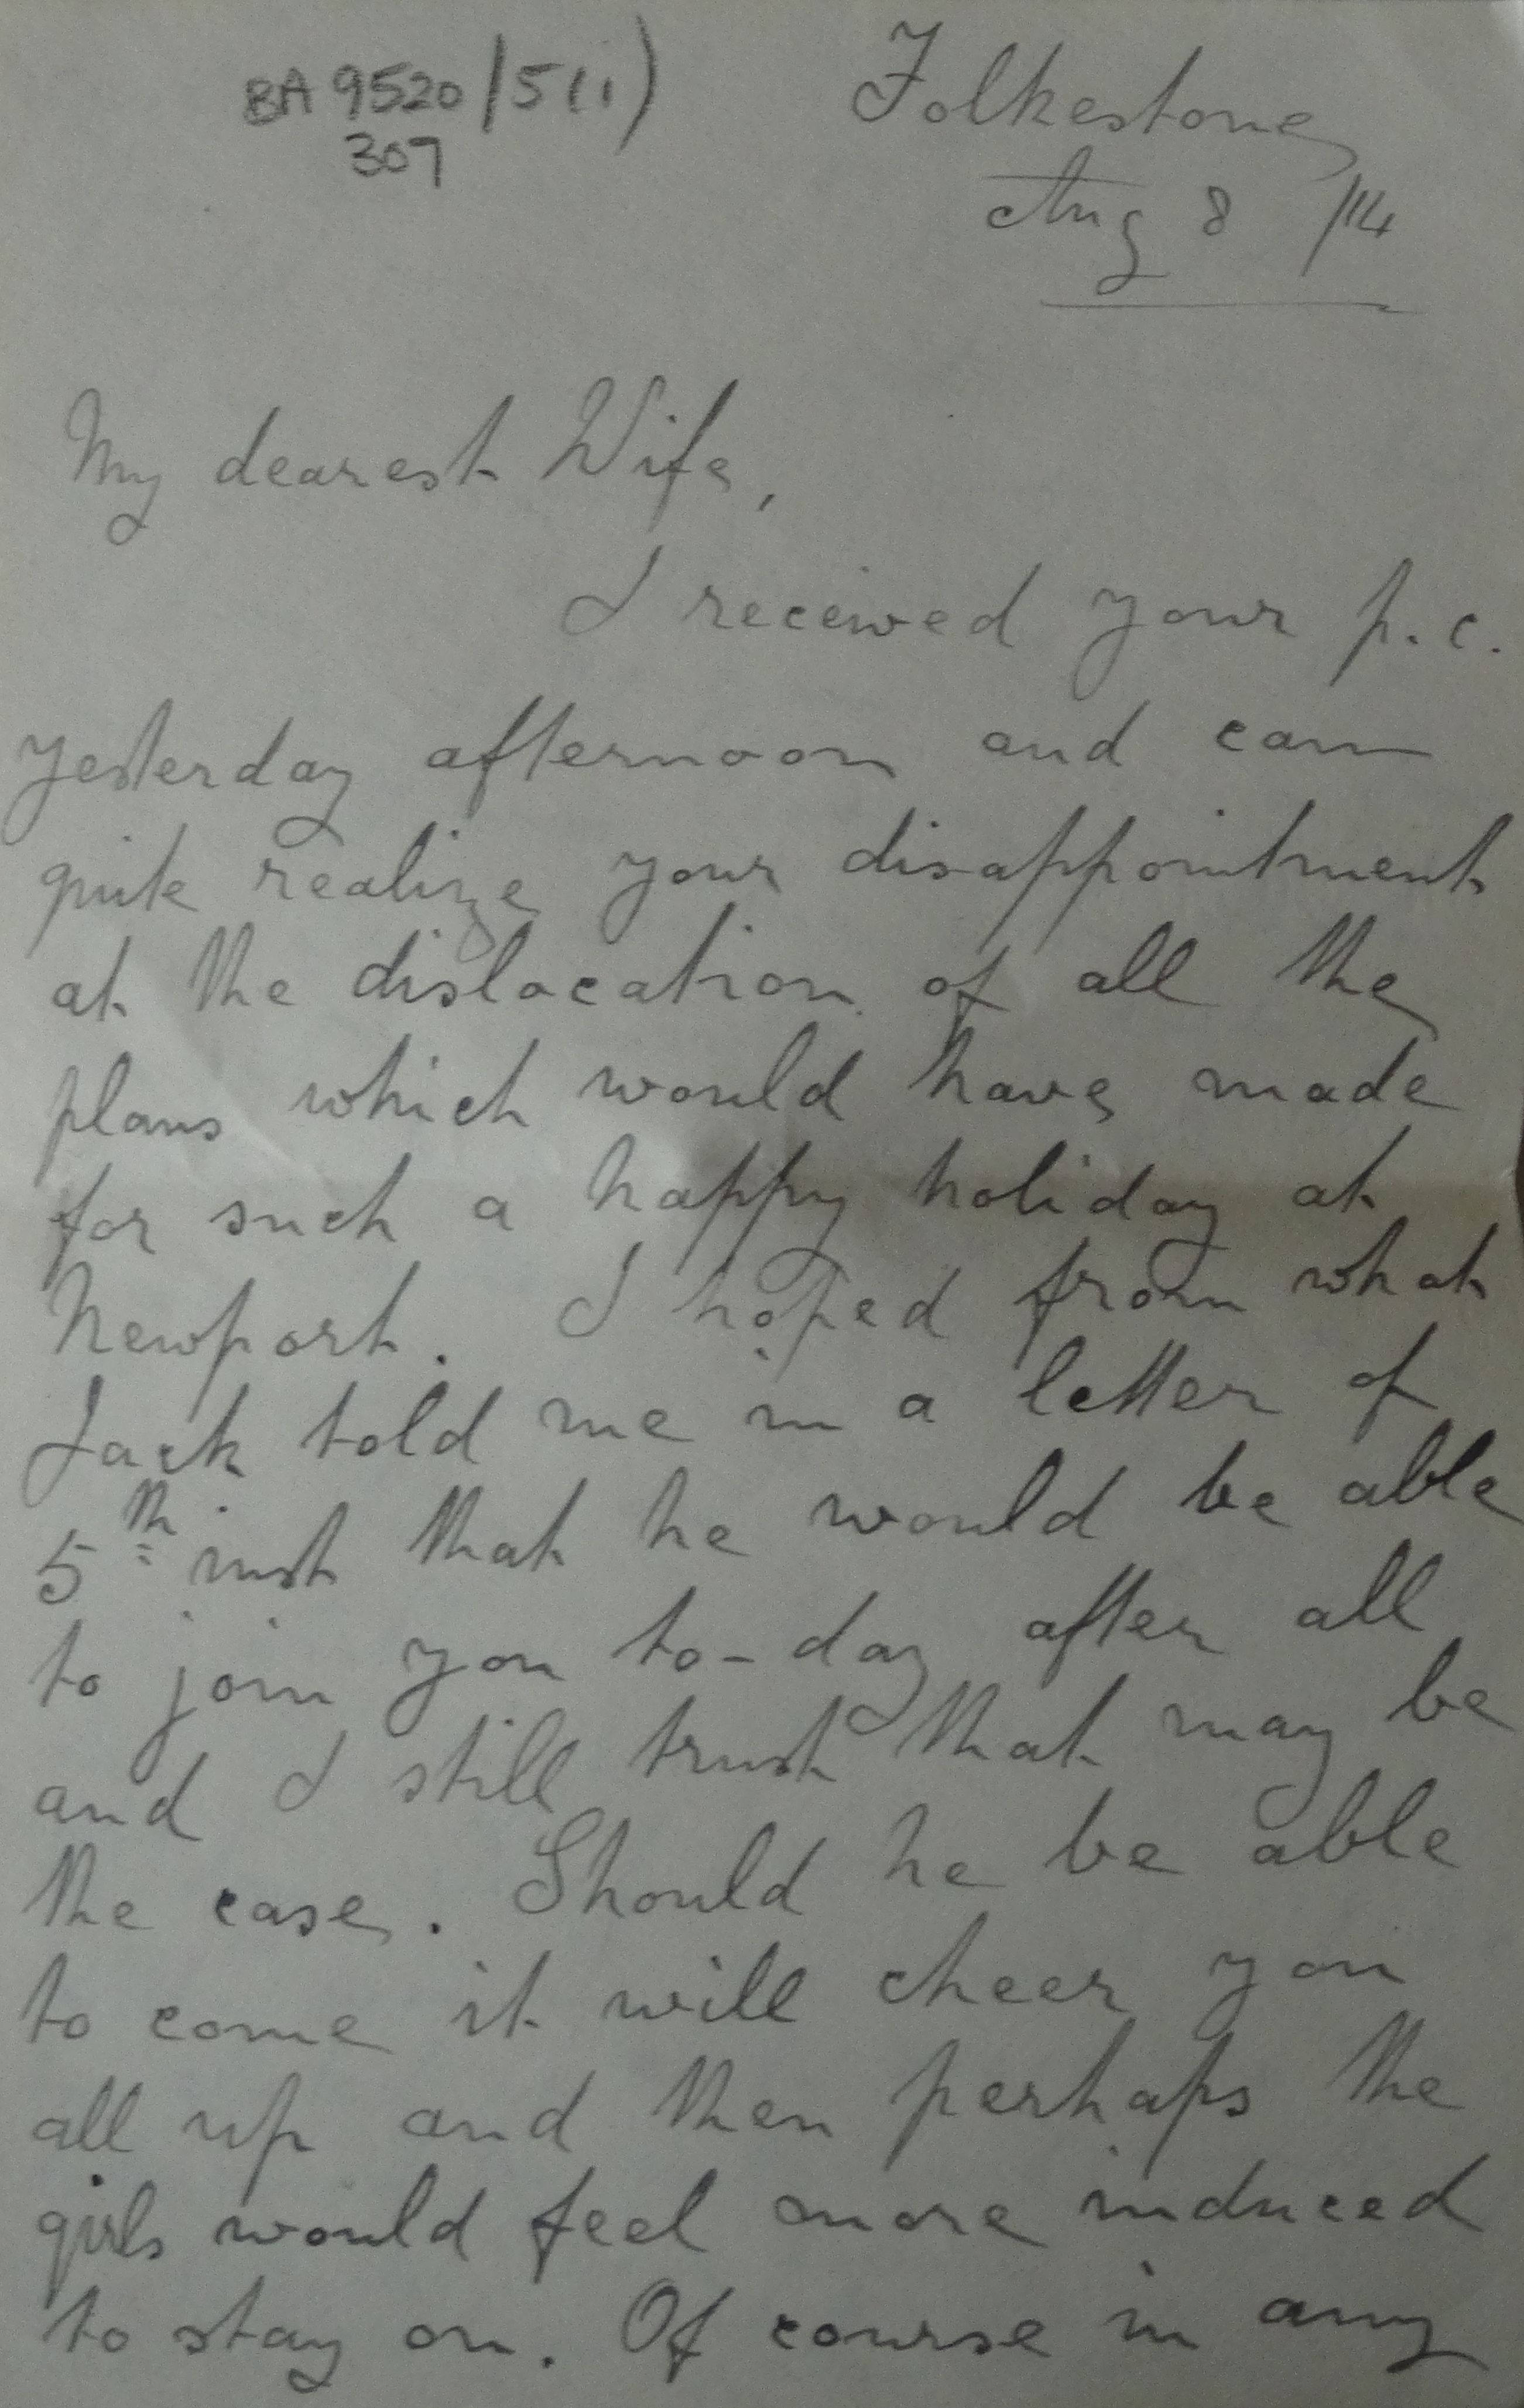 BA 9520/5(i)
307
Folkestone
Aug 8 /14
My dearest Wife,
I received your p.c.
yesterday afternoon and can
quite realize your disappointment
at the dislocation of all the
plans which would have made
for such a happy holiday at
Newport. I hoped from what
Jack told me in a letter of
5th inst that he would be able
to join you to-day after all
and I still trust that may be
the case. Should he be able
to come it will cheer you
all up and then perhaps the
girls would feel more induced
to stay on. Of course in any